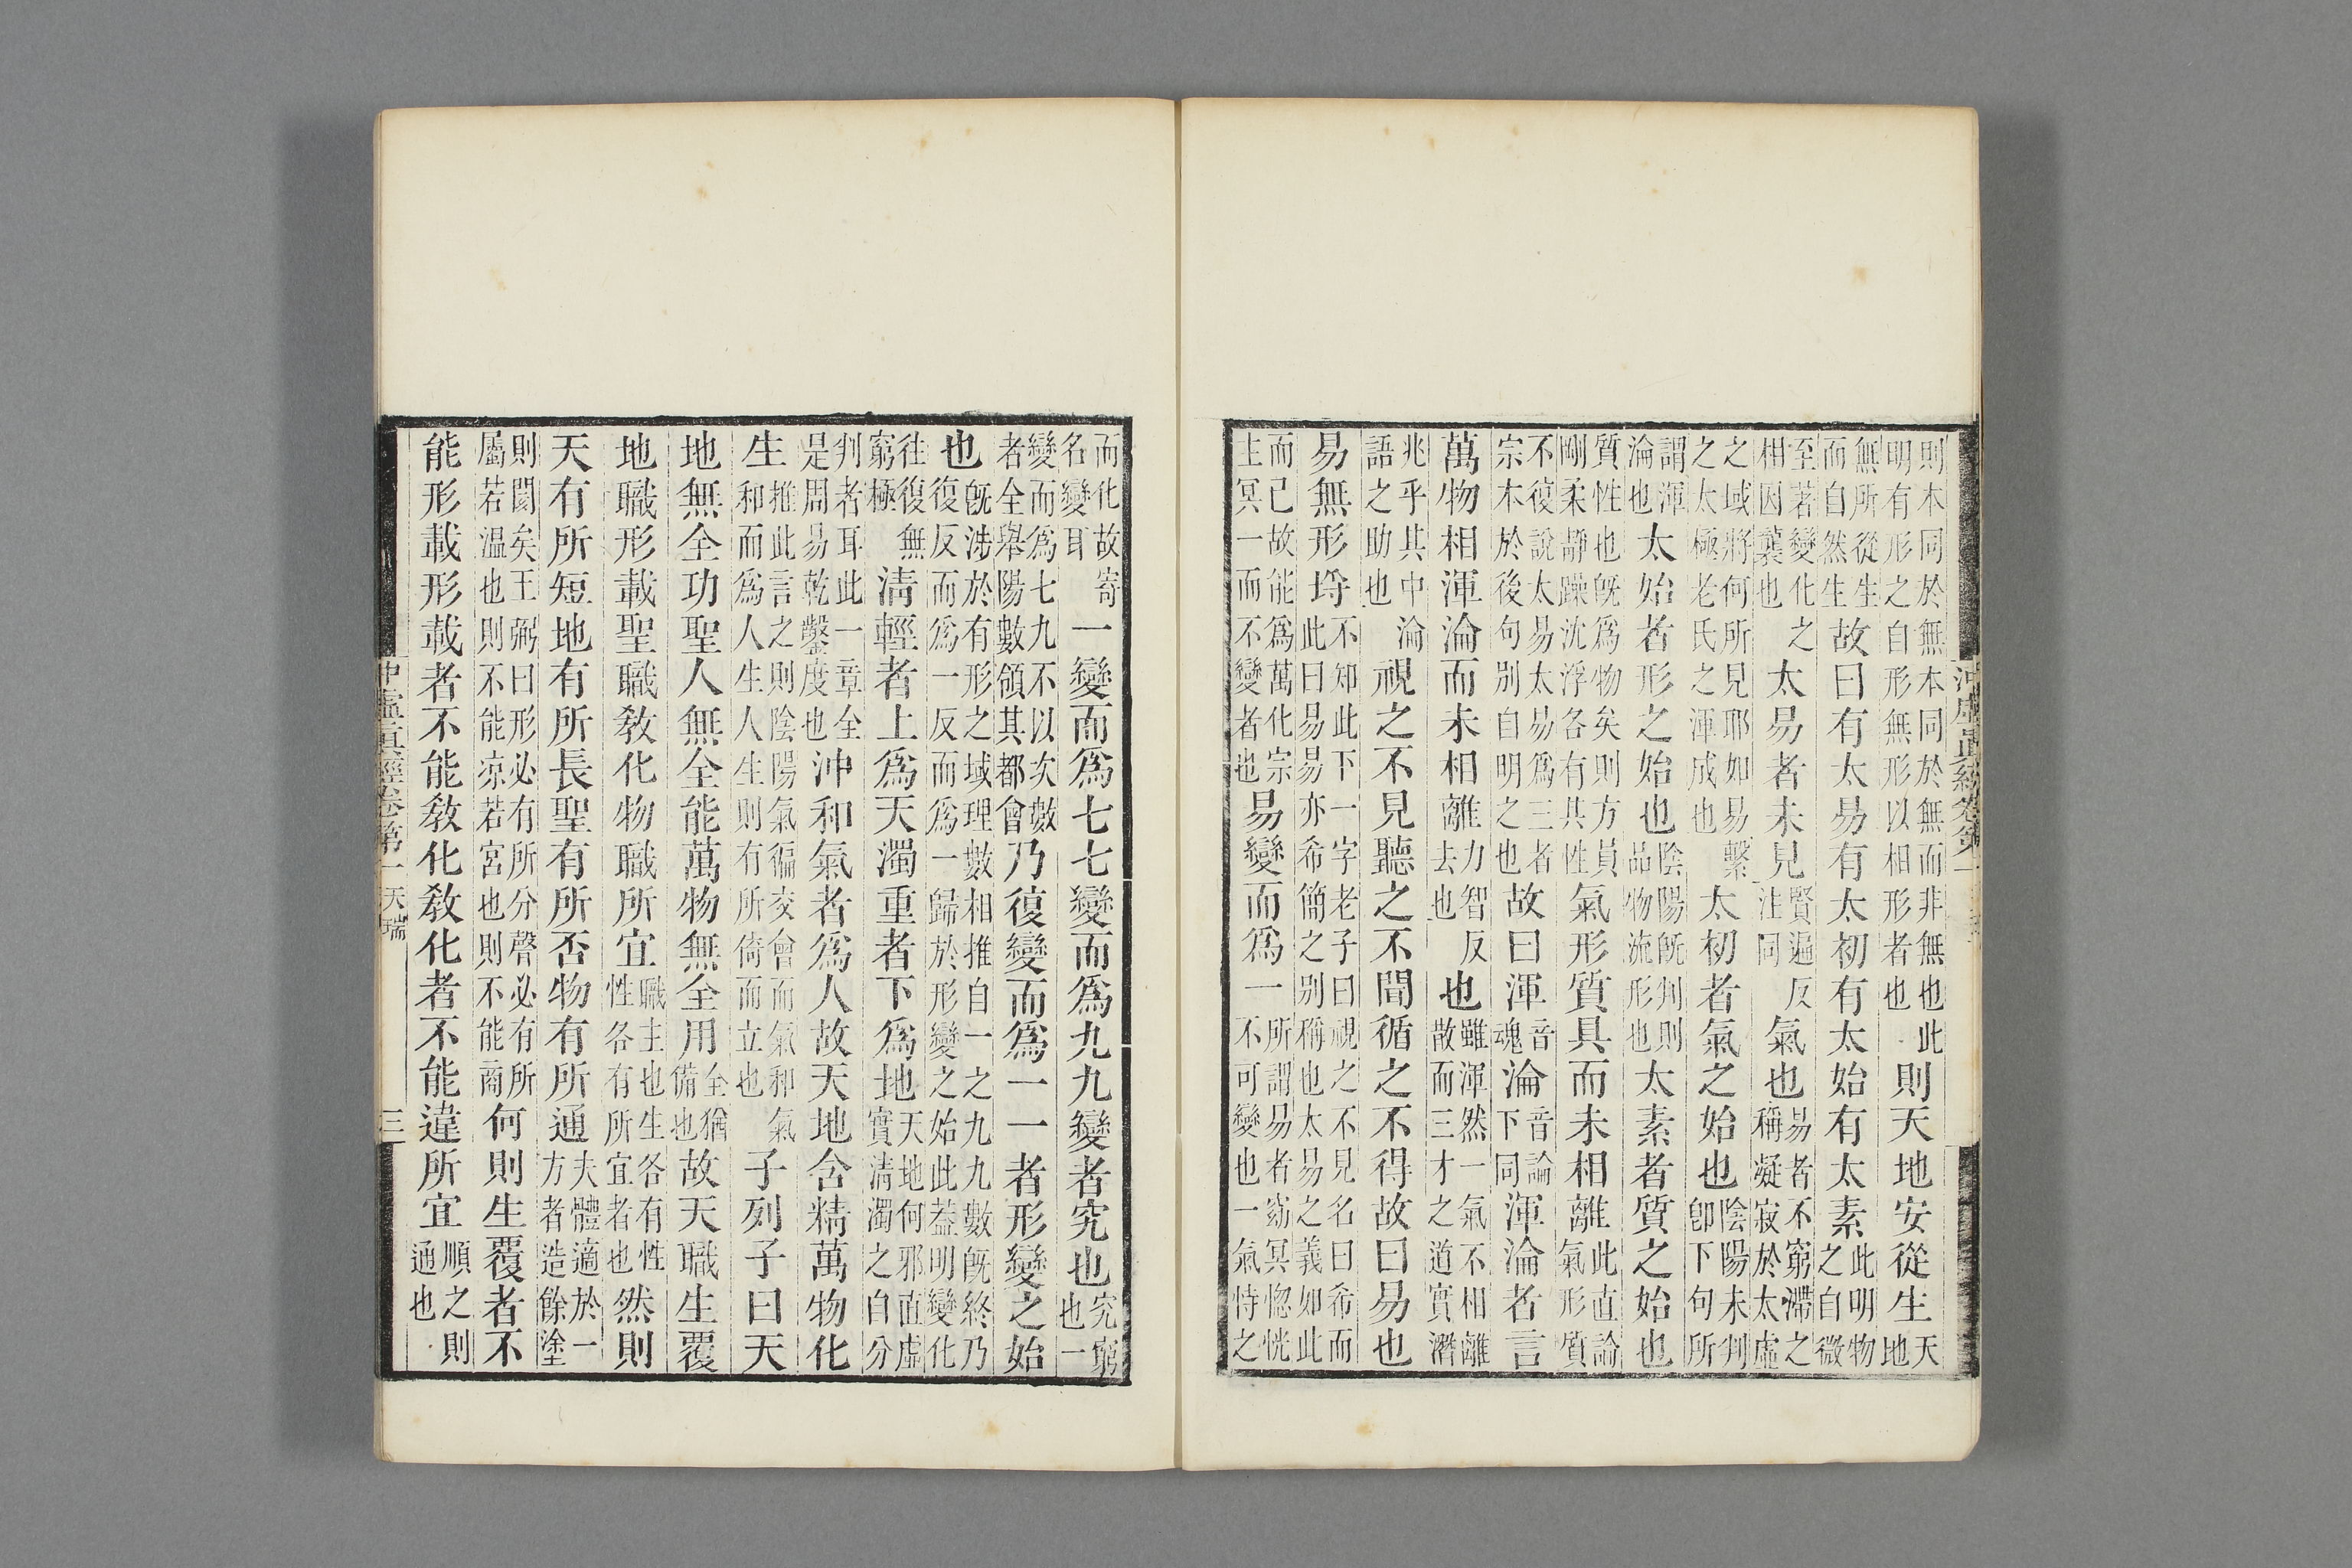 則本同於無本同於無而非無也此明有形之自形無形以相形者也則天地安從生天地
無所從生而自然生故曰有太易有太初有太始有太素此明物之自微
至著變化之相因襲也太易者未見賢遍反注同氣也易者不窮滯之稱凝寂於太虛
之域將何所見耶如易繫之太極老氏之渾成也太初者氣之始也陰陽未判卽下句所
謂渾淪也太始者形之始也陰陽旣判則品物流形也太素者質之始也
質性也旣爲物矣則方員剛柔靜躁沈浮各有其性氣形質具而未相離此直論氣形質
不復說太易太易爲三者宗本於後句別自明之也故曰渾音魂淪音論下同渾淪者言
萬物相渾淪而未相離力智反去也也雖渾然一氣不相離散而三才之道實潛
兆乎其中淪語之助也視之不見聽之不聞循之不得故曰易也
易無形埒不知此下一字老子曰視之不見名曰希而此曰易易亦希簡之别稱也太易之義如此
而已故能爲萬化宗主冥一而不變者也易變而爲一所謂易者窈冥惚恍不可變也一氣恃之
而化故寄名變耳一變而爲七七變而爲九九變者究也究窮也一
變而爲七九不以次數者全舉陽數領其都會乃復變而爲一一者形變之始
也旣涉於有形之域理數相推自一之九九數旣終乃復反而爲一反而爲一歸於形變之始此葢明變化
往復無窮極清輕者上爲天濁重者下爲地天地何邪直虛實清濁之自分
判者耳此一章全是周易乾鑿度也沖和氣者爲人故天地含精萬物化
生推此言之則陰陽氣徧交會而氣和氣和而爲人生人生則有所倚而立也子列子曰天
地無全功聖人無全能萬物無全用全猶備也故天職生覆
地職形載聖職教化物職所宜職主也生各有性性各有所宜者也然則
天有所短地有所長聖有所否物有所通夫體適於一方者造餘塗
則閡矣王弼曰形必有所分聲必有所屬若温也則不能涼若宮也則不能商何則生覆者不
能形載形載者不能教化教化者不能違所宜順之則通也
沖虛眞經卷第一 天瑞 三